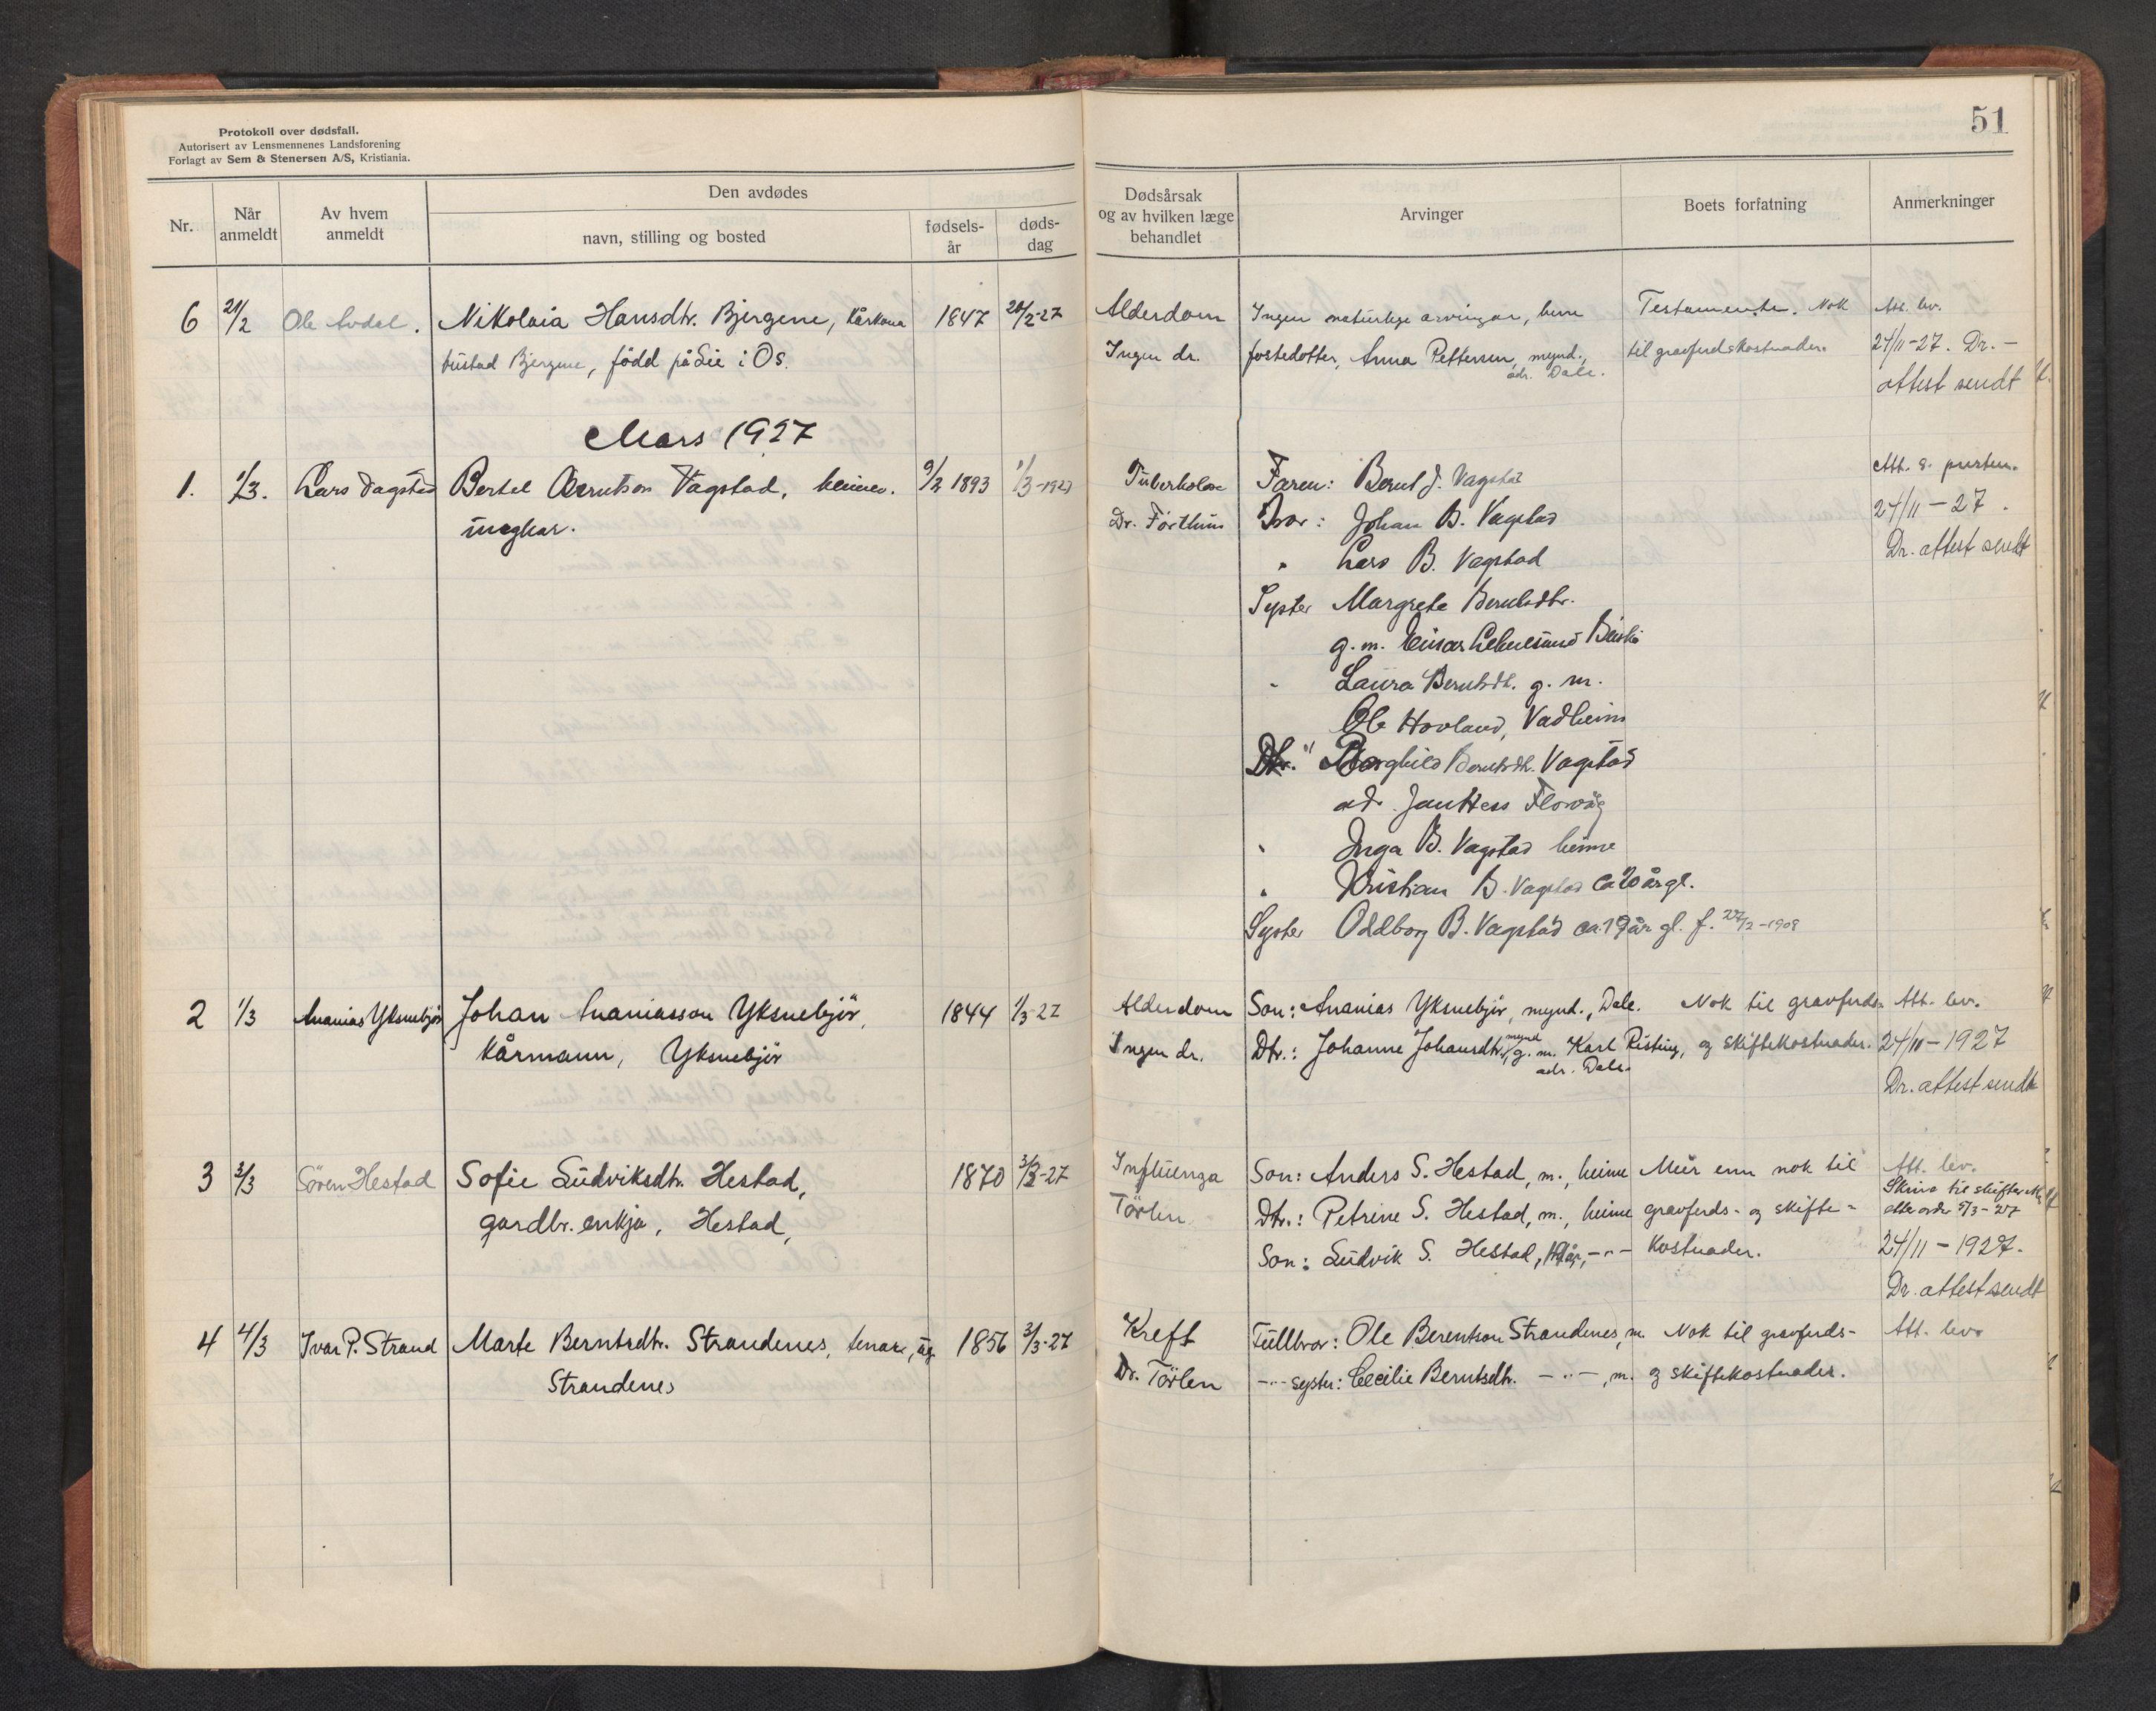 Protokoll over dødsfall.
Autorisert av Lensmennenes Landsforening
Forlagt av Sem & Stenersen A/S, Kristiania.
51
Nr.
Når anmeldt
Av hvem anmeldt
Den avdødes
navn, stilling og bosted
fødsels-år
døds-dag
Dødsårsak og av hvilken læge behandlet
Arvinger
Boets forfatning
Anmerkninger
6 21/2 Ole Avdal. Nikolaia Hansdtr. Bjergene, kårkona 1847 20/2-27
bustad Bjergene, född på Lie i Os.
Alderdom Ingen naturlege arvingar, berre Testamente. Nok Att. lev.
Ingen dr. fostedotter, Anna Pettersen, mynd., til gravferdskostnader. 24/11-27. Dr.-
adr. Dale.
attest sendt
Mars 1927
1. 1/3. Lars Vagstad Bertel Berntson Vagstad, heimev. 9/2 1893 1/3-1927
ungkar.
Tuberkolose Faren: Bernt J. Vagstad Att. s. posten.
Dr. Förthun Bror: Johan B. Vagstad 24/11-27.
" Lars B. Vagstad Dr. attest sendt
Syster Margrete Berntsdtr.
g. m. Einar
" Laura Berntsdt. g. m.
Ole Hovland, Vadheim
Dtr. " Borghild Berntsdt. Vagstad
adr. Florvåg
" Inga B. Vagstad heime
" Kristian B. Vagstad ca 20 år gl.
Syster Oddborg B. Vagstad ca. 19 år gl. f. 27/2-1908
2 1/3 Ananias Yksnebjör Johan Ananiasson Yksnebjör, 1844 1/3-27
kårmann, Yksnebjör
Alderdom Son: Ananias Yksnebjör, mynd., Dale. Nok til gravferds- Att. lev.
Ingen dr. Dtr.: Johanne Johansdtr. mynd g. m. Karl Risting, og skiftekostnader. 24/11-1927
adr. Dale.
Dr. attest sendt
3 3/3 Sören Hestad Sofie Ludviksdtr. Hestad, 1870 3/3-27
gardbr. enkja, Hestad,
Influenza Son: Anders S. Hestad, m., heime Meir enn nok til Att. lev.
Törlen Dtr.: Petrine S. Hestad, m., heime gravferds- og skifte-
Skriv til skifter
etter ordr 5/3-27
Son: Ludvik S. Hestad, 19 år, -"- kostnader. 24/11-1927.
Dr. attest sendt
4 4/3 Ivar P. Strand Marte Berntsdtr. Strandenes, tenar, ug. 1856 3/3-27
Strandenes
Kreft Tullbror: Ole Berentson Strandenes, m. Nok til gravferds- Att. lev.
Dr. Törlen -"- syster: Cecilie Berntsdtr. -"-, m. og skiftekostnader.